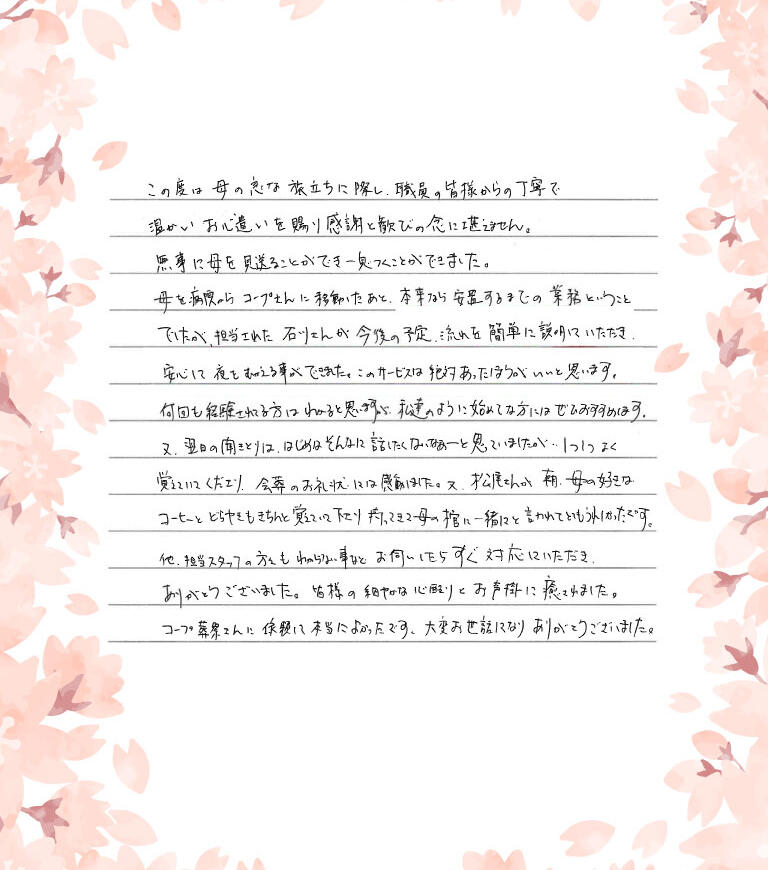 この度は母の急な旅立ちに際し、職員の皆様からの丁寧で
温かいお心遣いを賜り感謝と歓びの念に堪えません。
無事に母を見送ることができ一息つくことができました。
母を病院からコープさんに移動したあと、本来なら安置するまでの業務ということ
でしたが、担当された石川さんが今後の予定、流れを簡単に説明していただき、
安心して夜をむかえる事ができました。このサービスは絶対あったほうがいいと思います。
何回も経験されてる方はわかると思いますが、私達のように始めてな方にはぜひおすすめします。
又、翌日の聞きとりは、はじめはそんなに話したくないなぁーと思っていましたが、1つ1つよく
覚えていてくださり、会葬のお礼状には感動しました。又、松尾さんが朝、母の好きな
コーヒーとどらやきもきちんと覚えていて下さり持ってきて母の棺に一緒にと言われてとてもうれしかったです。
他、担当スタッフの方々もわからない事などお伺いしたらすぐ対応していただき、
ありがとうございました。皆様の細やかな心配りとお声掛に癒されました。
コープ葬祭さんに依頼して本当によかったです、大変お世話になりありがとうございました。